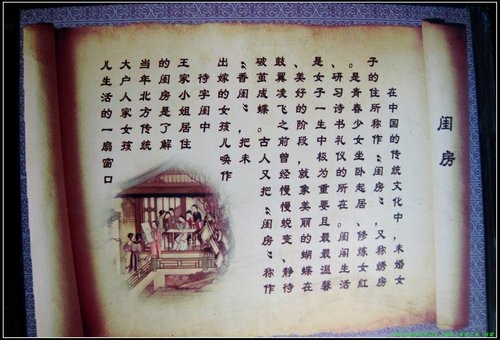 闺房
在中国的传统文化中，未婚女
子的住所称作“闺房”，又称绣房
。是青春少女坐卧起居、修炼女红
、研习诗书礼仪的所在。闺阁生活
是女子一生中极为重要且最最温馨
、美好的阶段，就象美丽的蝴蝶在
鼓翼凌飞之前曾经慢慢蜕变、静待
破茧成蝶。古人又把“闺房”称作
“香闺”，把未
出嫁的女孩儿唤作
待字闺中
王家小姐居住
的闺房是了解
当年北方传统
大户人家女孩
儿生活的一扇窗口